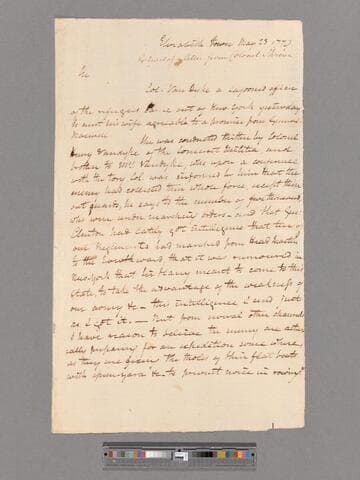 Elizabeth Town May 23 1779
Extract of a letter from Colonel Shreve
Sir
Col. Van Dyke a Captured officer
of the refugees came out of New York yesterday
to meet his wife agreeable to a promise from General
Maxwell
He was conducted thither by Colonel
Henry Vandyke of the Somerset Militia and
brother to Mrs Vandyke, who upon a converse
with the tory Col. was informed by him that the
enemy had collected their whole force, except their
out guards, he says to the number of five thousand,
who were under marching orders – and that Genl
Clinton had lately got intelligence that two of
our Regiments had marched from Head Quarters
to the Southward that it was rumoured in
New-York that his Army meant to come to this
state, to take the advantage of the weakness of
our army &c – this intelligence I send just
as I got it. – But from several other channels
I have reason to believe the enemy are actu
ally preparing for an expedition some where,
as they are fixing the tholes of their flat boats
with spun-yarn &c to prevent noise in rowing